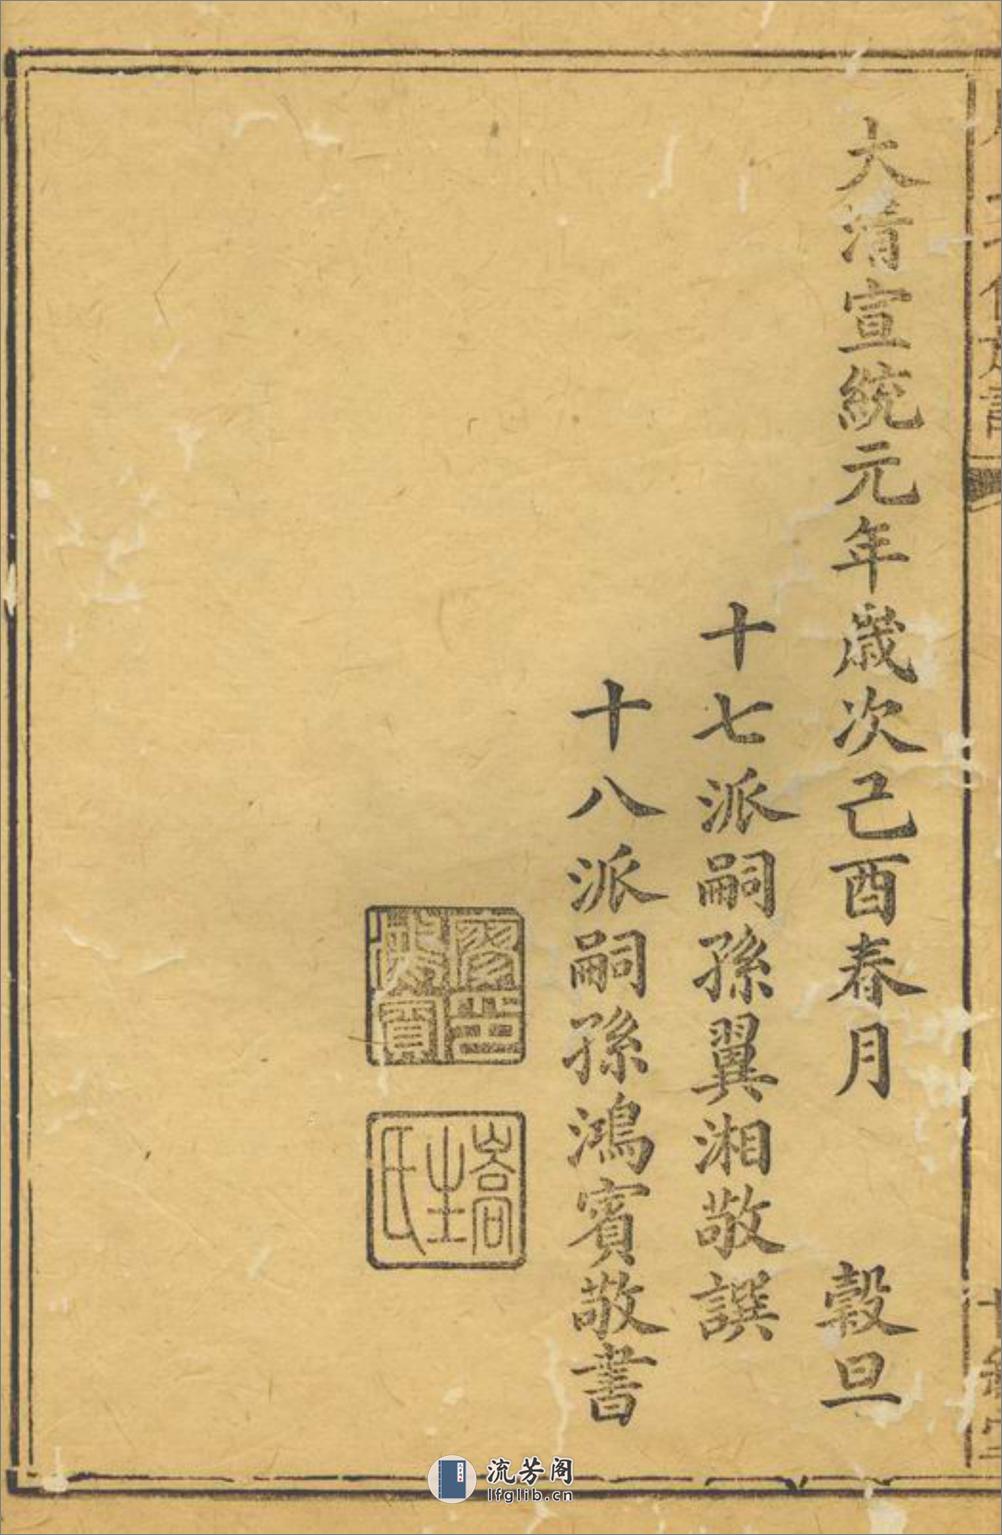 大清宣統元年歲次己酉春月　穀旦
十七派嗣孫翼湘敬譔
十八派嗣孫鴻賓敬書
流芳阁
lfglib.cn